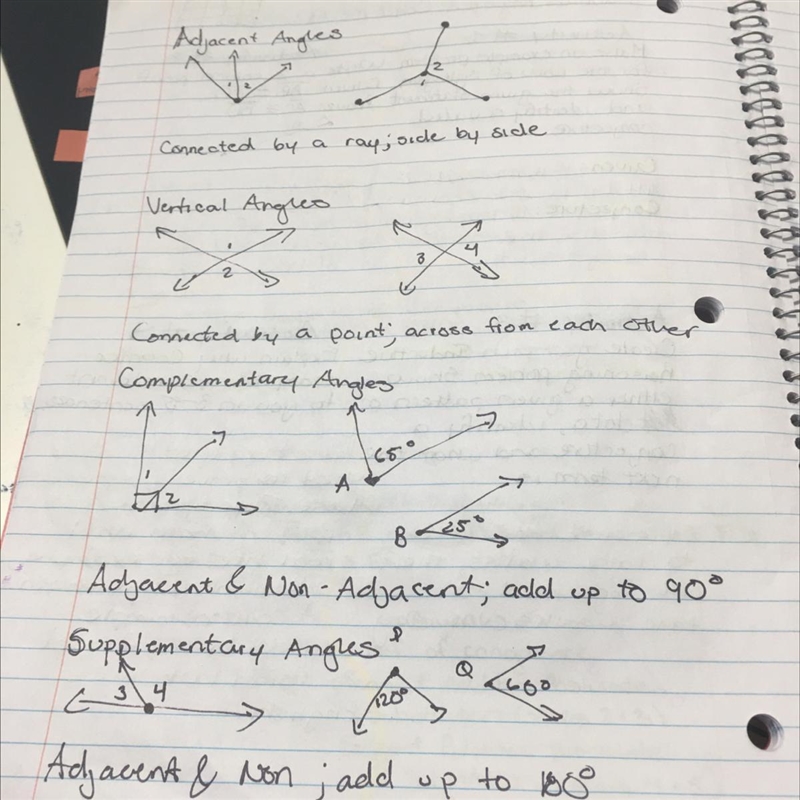 Adjacent Angles
1 2
1 2
Connected by a ray; side by side
Vertical Angles
1
2
3 4
Connected by a point; across from each other
Complementary Angles
1
2
A 65°
B 25°
Adjacent & Non-Adjacent; add up to 90°
Supplementary Angles
3 4
P 120°
Q 60°
Adjacent & Non ; add up to 180°